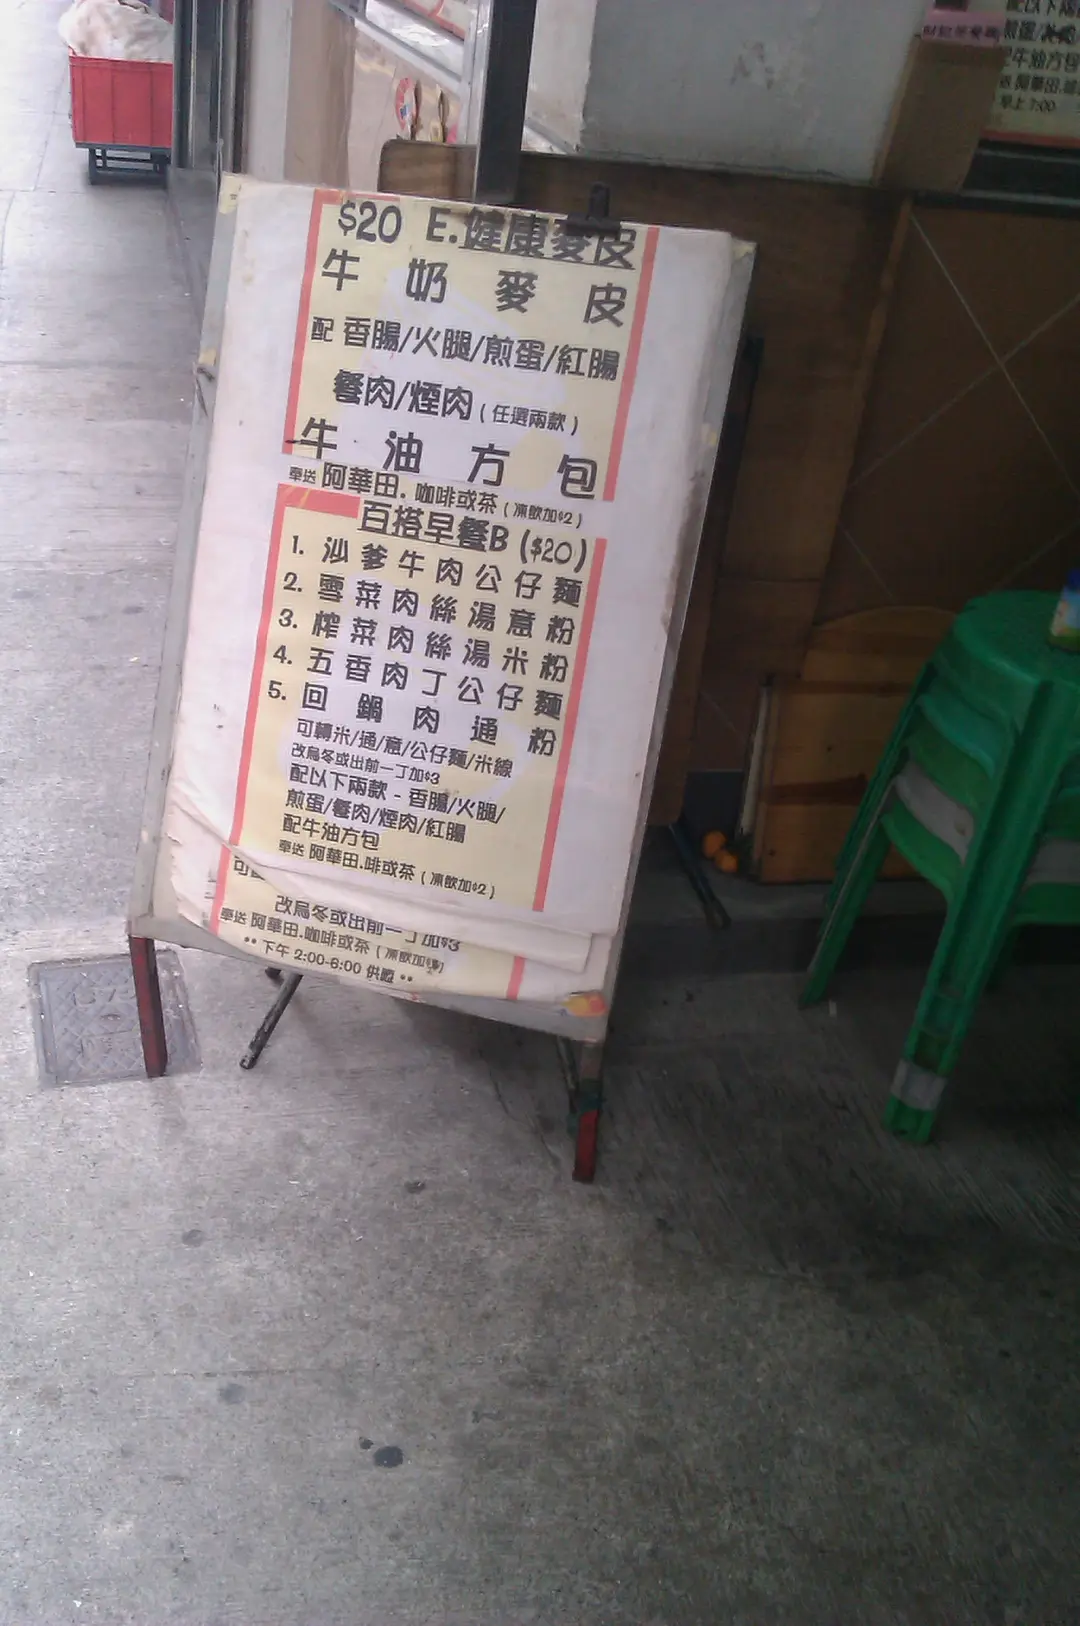 $20 E.健康麥皮
牛奶麥皮
配 香腸/火腿/煎蛋/紅腸
餐肉/煙肉 (任選兩款)
牛油方包
奉送 阿華田. 咖啡或茶 (凍飲加$2)
百搭早餐B ($20)
1. 沙爹牛肉公仔麵
2. 雪菜肉絲湯意粉
3. 榨菜肉絲湯米粉
4. 五香肉丁公仔麵
5. 回鍋肉通粉
可轉米/通/意/公仔麵/米線
改烏冬或出前一丁加$3
配以下兩款 - 香腸/火腿/
煎蛋/餐肉/煙肉/紅腸
配牛油方包
奉送 阿華田.啡或茶 (凍飲加$2)
可
改烏冬或出前一丁加$3
奉送 阿華田.咖啡或茶 (凍飲加
•• 下午 2:00-6:00 供應 ••
配以下兩
煎蛋/餐肉
牛油方包
阿華田.咖
早上 7:00